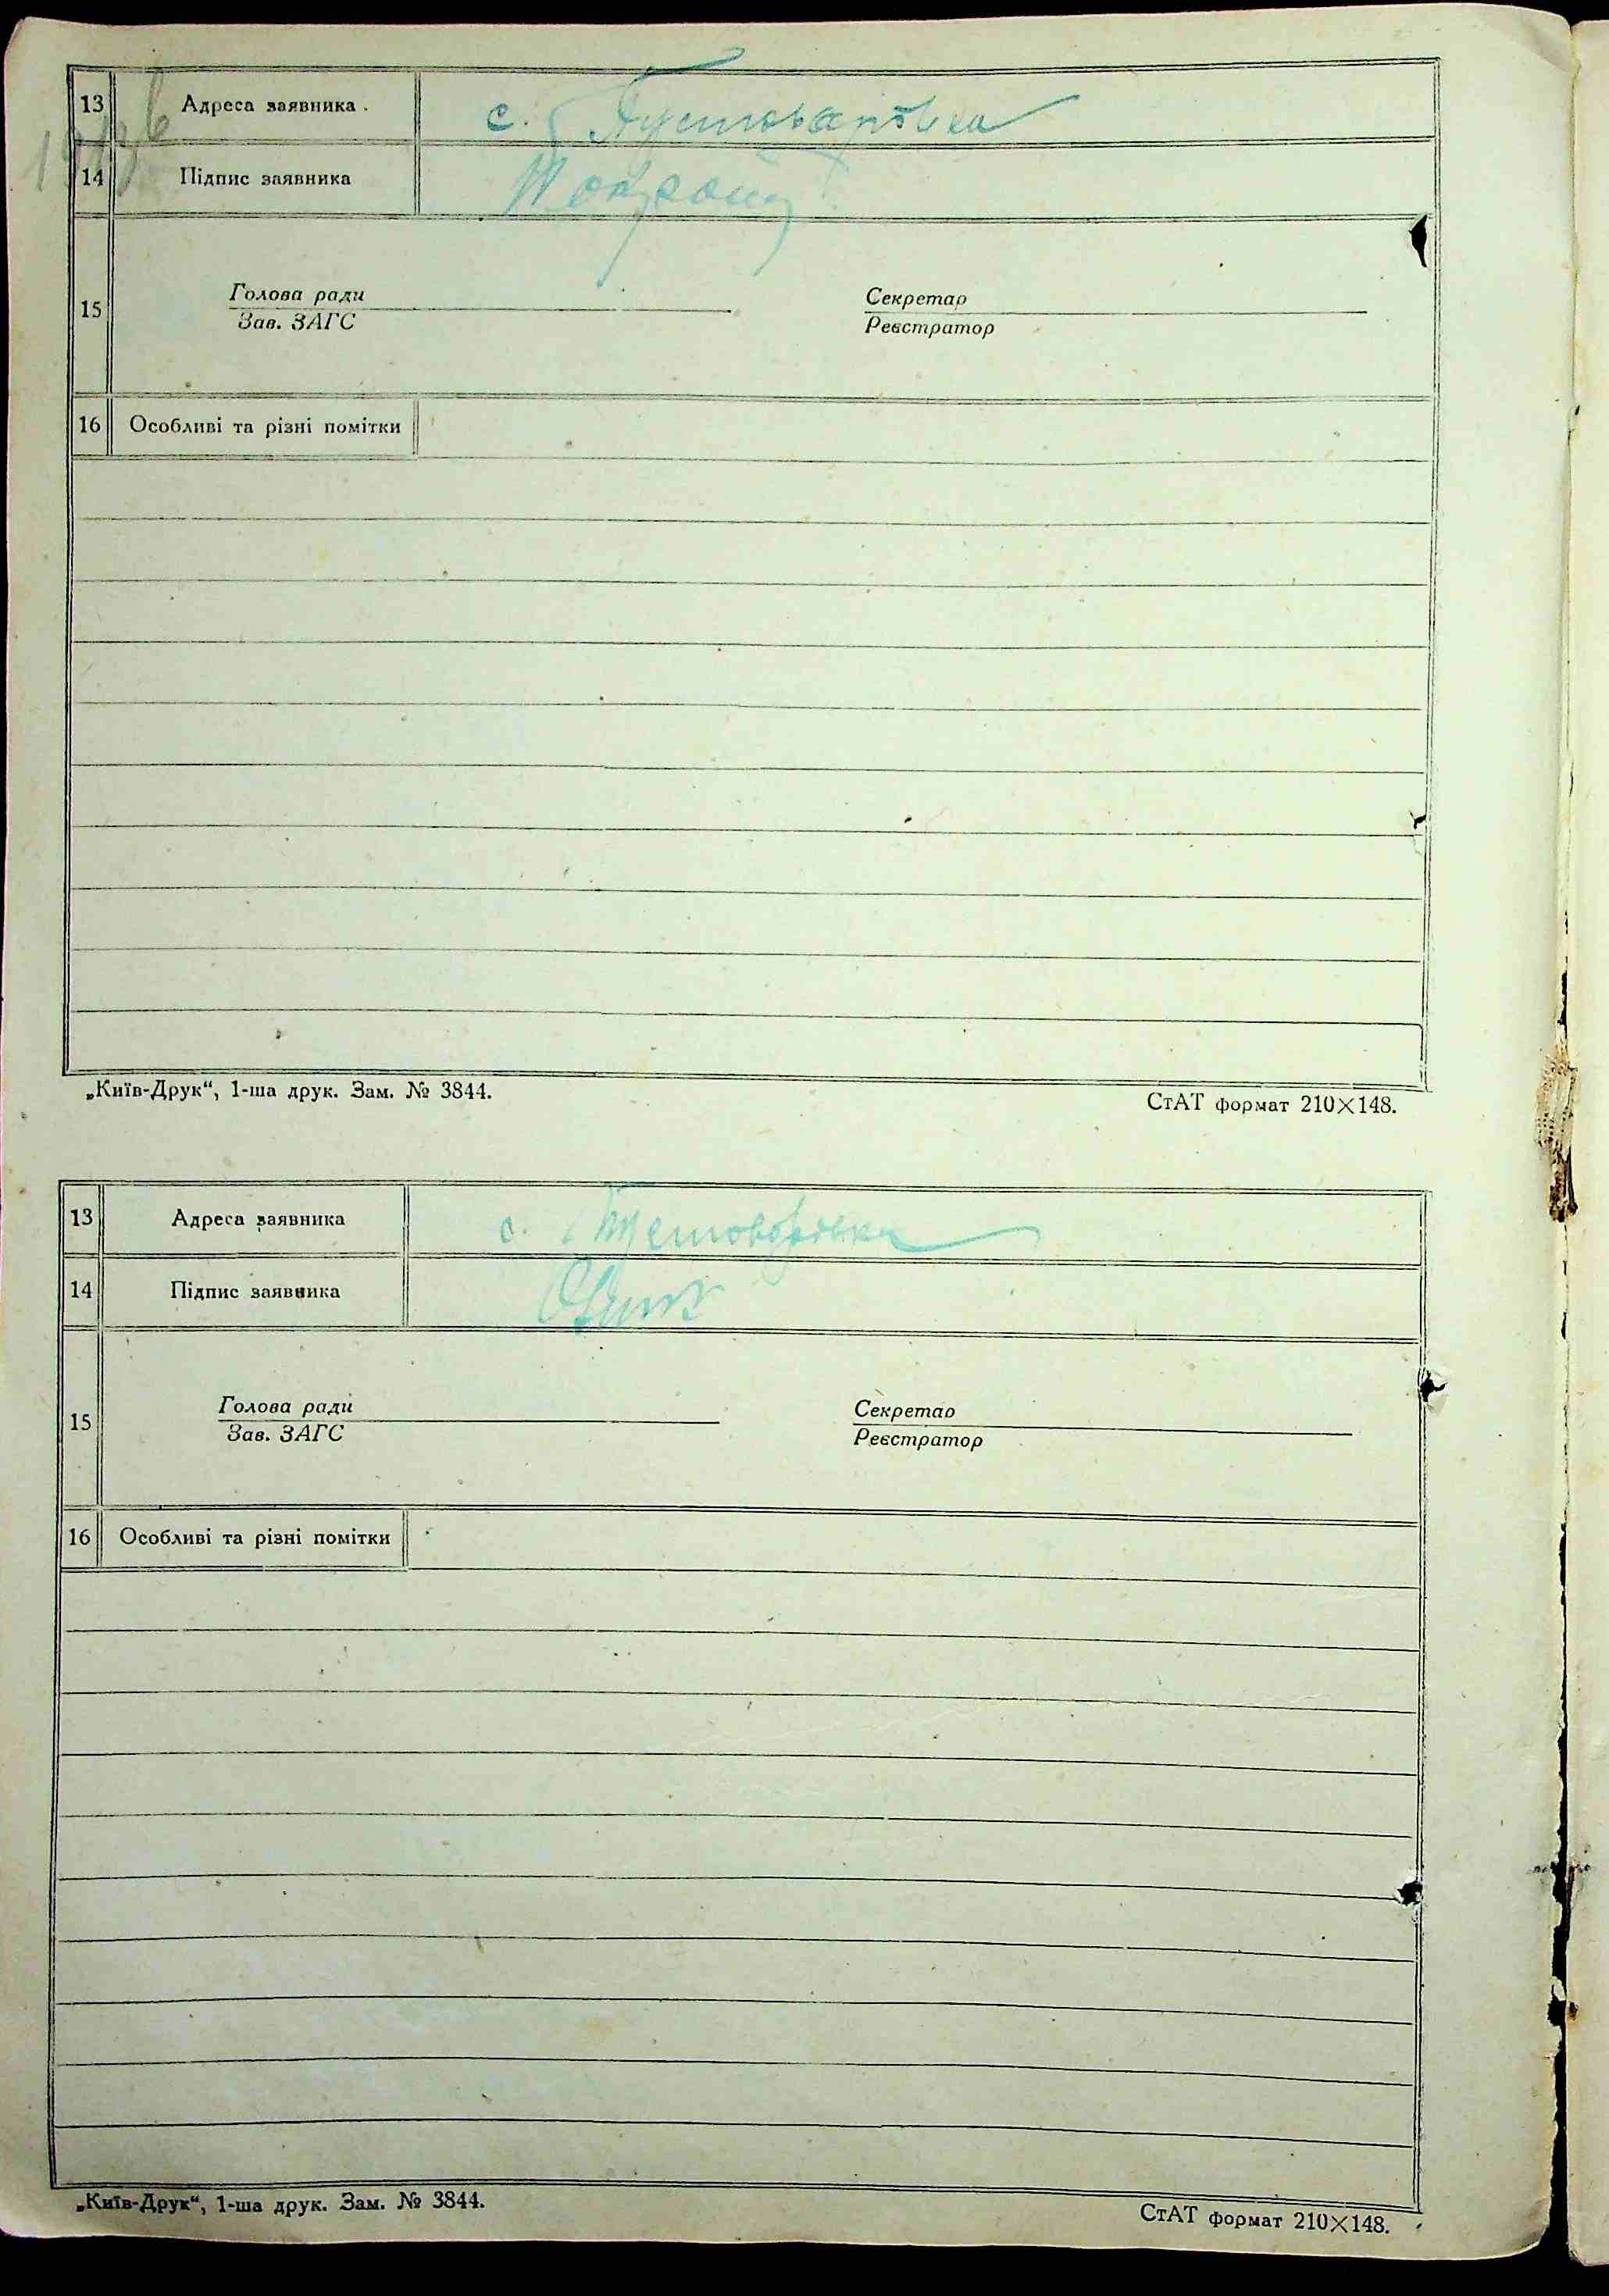 13 Адреса заявника . с. Пустоварівка
14 Підпис заявника
Голова ради Секретар
15
Зав. ЗАГС Реєстратор
16 Особливі та різні помітки
„Київ-Друк“, 1-ша друк. Зам. № 3844. СтАТ формат 210×148.
13 Адреса заявника с. Пустоварівка
14 Підпис заявника
Голова ради Секретар
15
Зав. ЗАГС Реєстратор
16 Особливі та різні помітки
„Київ-Друк“, 1-ша друк. Зам. № 3844. СтАТ формат 210×148.